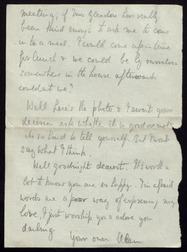 meeting, if Mrs
been kind enough to ask me to come
in to a meal. I could come up in time
for lunch & we could be by ourselves
somewhere in the house afterwards
couldn't we?
Well here's the photo & I want your
decision as to whether it is good or not
so kind to tell yourself. But don't
say what I think.
Well goodnight dearest. It's worth a
lot to know you are so happy. I'm afraid
words are a poor way of expressing my
love, I just worship you & adore you
darling
Your own